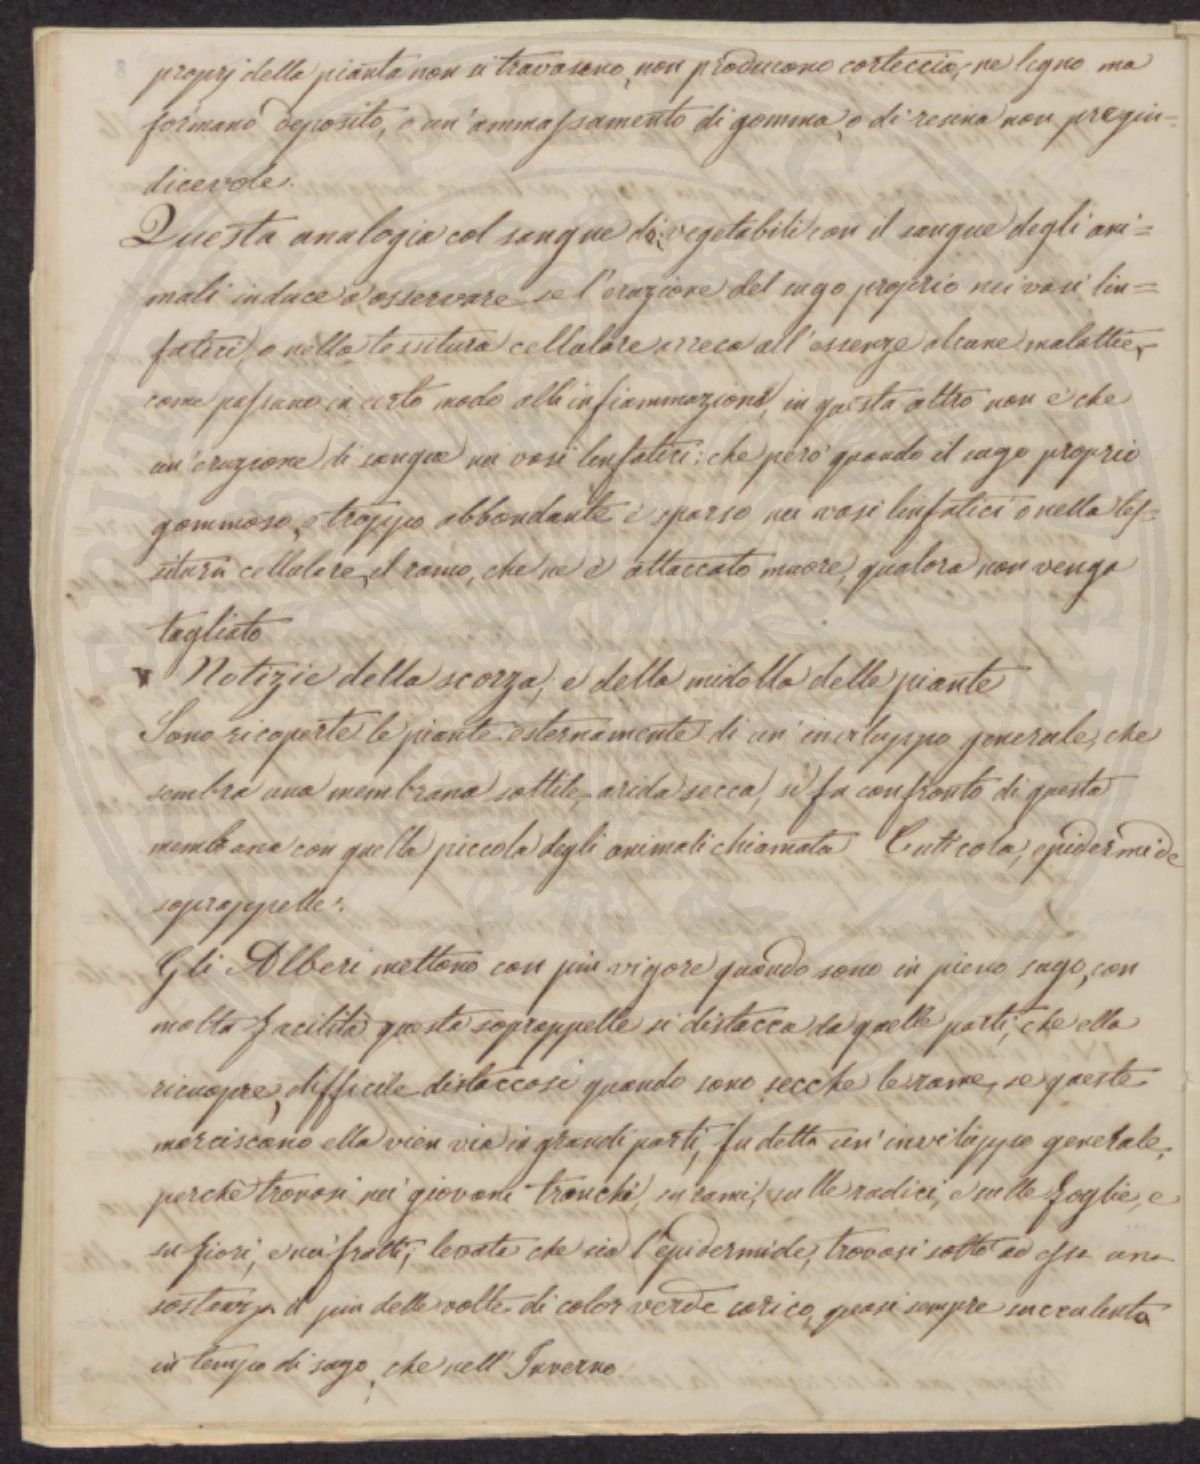 proprj della pianta non si travasano, non producono corteccia, ne legno ma
formano deposito, o un'ammassamento di gomma, o di resina non pregiu=
dicevole.
Questa analogia col sangue dei vegetabili con il sangue degli ani=
mali induce a osservare se l'eruzione del sugo proprio nei vasi lin=
fatici, o nella tessitura cellulare arreca all'essenze alcune malattie,
come passano in certo modo all'infiammazione, in questa altro non è che
un'eruzione di sangue nei vasi linfatici; che però quando il sugo proprio
gommoso, e troppo abbondante è sparso nei vasi linfatici o nella tes=
situra cellulare, il ramo, che ne è attaccato muore, qualora non venga
tagliato
Notizie della scorza, e della midolla delle piante
Sono ricoperte le piante esternamente di un'inviluppo generale, che
sembra una membrana sottile, arida secca, si fa confronto di questa
membrana con quella piccola degli animali chiamata Cuticola, epidermide
soprappelle.
Gli Alberi mettono con piu vigore quando sono in pieno sugo, con
molta facilità questa soprappelle si distacca da quelle parti, che ella
ricuopre, difficile distaccasi quando sono secche le rame, se queste
marciscono ella vien via in grandi parti, fu detta un'inviluppo generale,
perchè trovasi nei giovani tronchi, su rami, sulle radici, e sulle foglie, e
su fiori, e nei frutti; levata che sia l'epidermide, trovasi sotto ad essa una
sostanza il piu delle volte di color verde carico, quasi sempre succulenta
in tempo di sugo, che nell'Inverno.